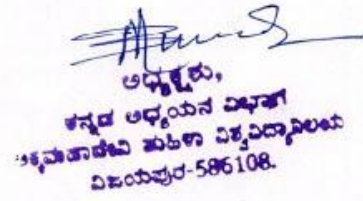 ಅಧ್ಯಕ್ಷರು,
ಕನ್ನಡ ಅಧ್ಯಯನ ವಿಭಾಗ
ಅಕ್ಕಮಹಾದೇವಿ ಮಹಿಳಾ ವಿಶ್ವವಿದ್ಯಾನಿಲಯ
ವಿಜಯಪುರ-586108.